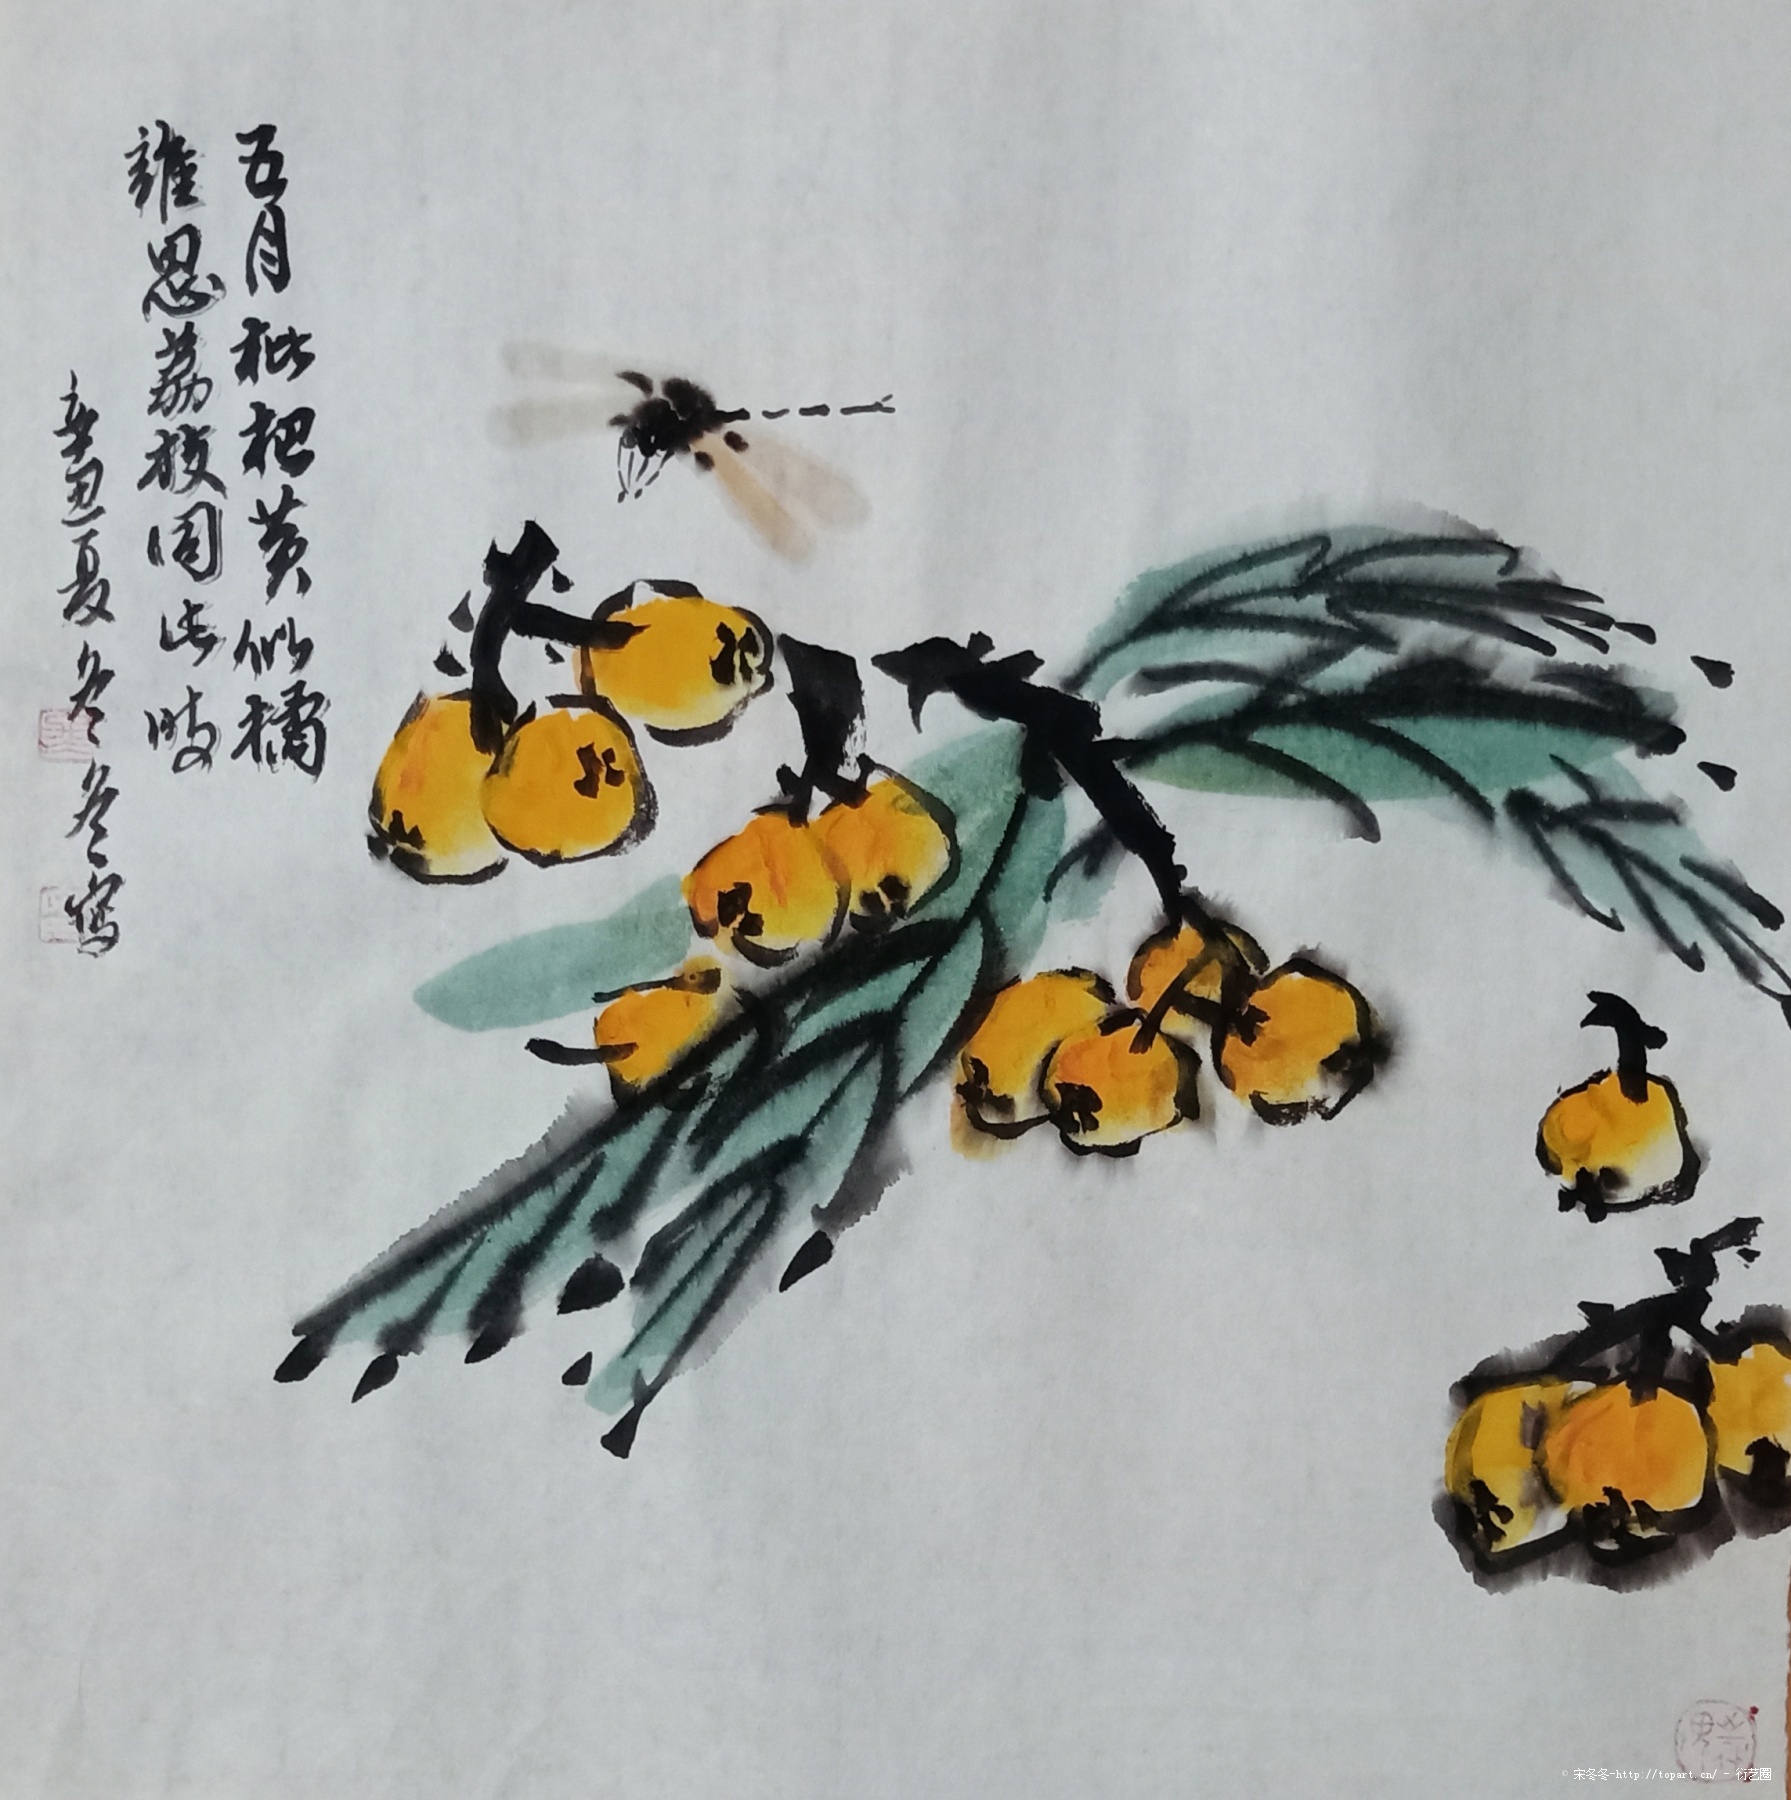 五月枇杷黄似橘
誰思荔枝同此時
辛丑夏冬冬寫
© 宋冬冬-http://topart.cn/ - 衍艺圈